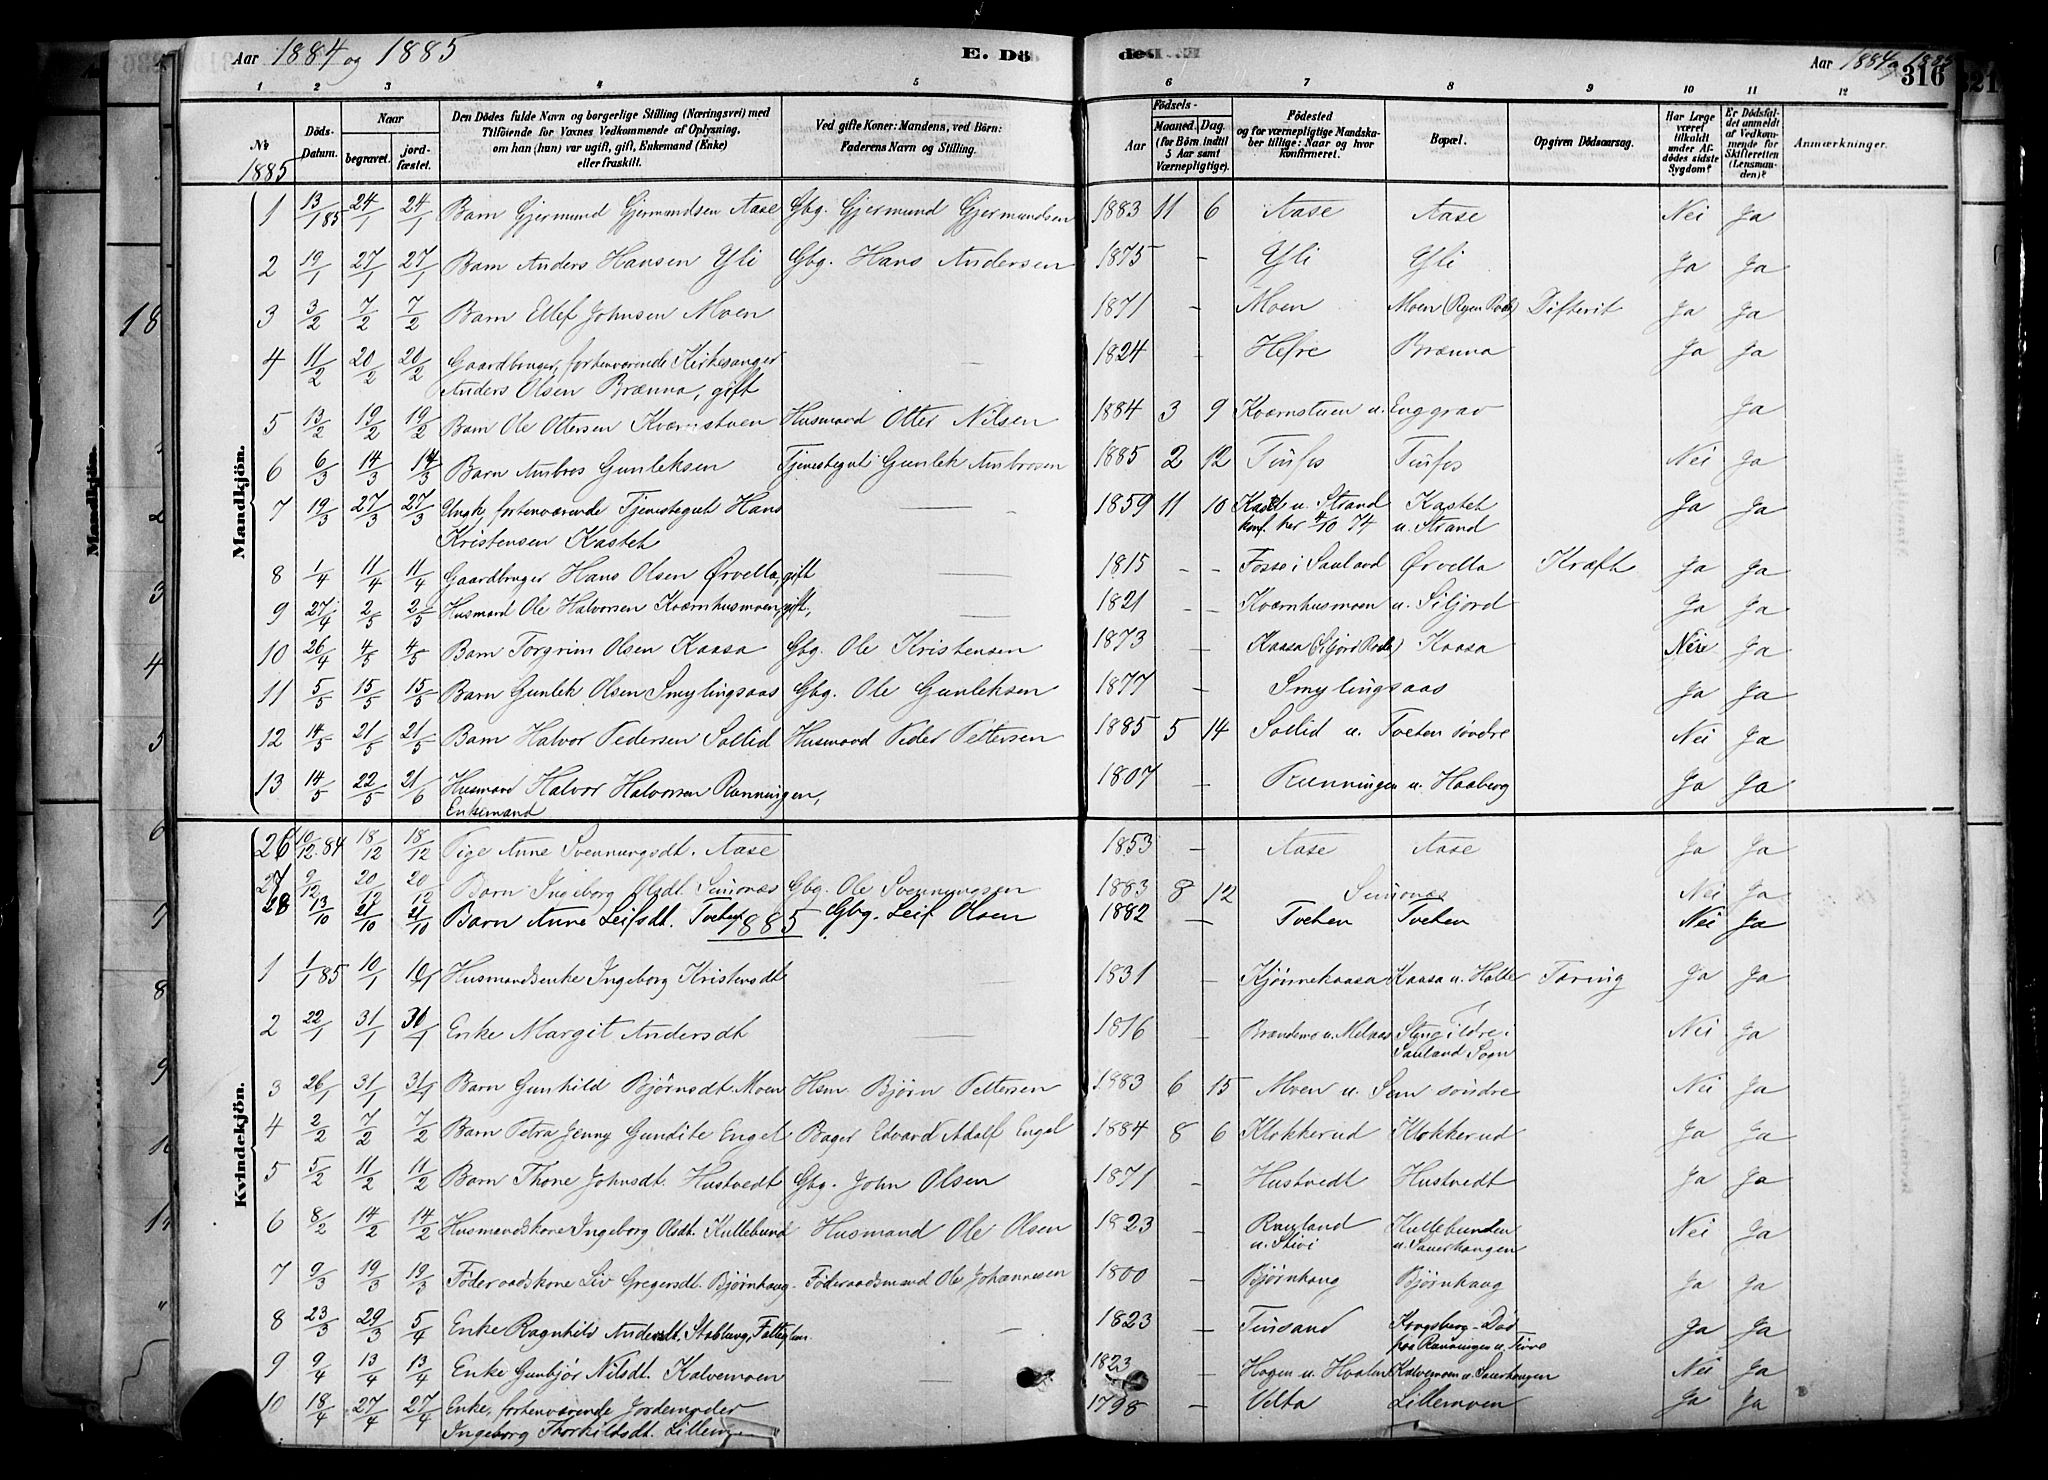 Aar 1884 og 1885 E. Dö- des. Aar 1884 og 1885
316
1 2 3 4 5 6 7 8 9 10 11 12
№ 1885
Döds-Datum.
Naar
begravet.
jord-fæstet.
Den Dödes fulde Navn og borgerlige Stilling (Næringsvei) med
Tilföiende for Voxnes Vedkommende af Oplysning,
om han (hun) var ugift, gift, Enkemand (Enke)
eller fraskilt.
Ved gifte Koner: Mandens, ved Börn:
Faderens Navn og Stilling.
Födsels-
Aar
Maaned. Dag.
(for Börn indtil
5 Aar samt
Værnepligtige).
Födested
og for værnepligtige Mandska-
ber tillige: Naar og hvor
konfirmeret.
Bopæl.
Opgiven Dödsaarsag.
Har Læge
været
tilkaldt
under Af-
dödes sidste
Sygdom?
Er Dödsfal-
det anmeldt
af Vedkom-
mende for
Skifteretten
(Lensman-
den)?
Anmærkninger.
Mandkjön.
1 13/1 85 24/1 24/1 Barn Gjermund Gjermundsen Aase Gbg. Gjermund Gjermundsen 1883 11 6 Aase Aase Nei Ja
2 19/1 27/1 27/1 Barn Anders Hansen Yli Gbg. Hans Andersen 1875 - Yli Yli Ja Ja
3 3/2 7/2 7/2 Barn Ellef Johnsen Moen 1871 - Moen Moen Difterit Ja Ja
4 11/2 20/2 20/2 Gaardbruger, forhenværende Kirkesanger — 1824 - Hefre Brænna Ja Ja
Anders Olsen Brænna, gift
5 13/2 19/2 19/2 Barn Ole Ottersen Kværnstuen Husmand Otter Nilsen 1884 3 9 Kværnstuen u. Enggrav Ja
6 6/3 14/3 14/3 Barn Ambros Gunleksen Tjenestegut Gunlek Ambrosen 1885 2 12 Tinfos Tinfos Nei Ja
7 19/3 27/3 27/3 Ungk. forhenværende Tjenestegut Hans — 1859 11 10 Kastet u. Strand Kastet Ja Ja
Kristensen Kastet konf. her 4/10 74 u. Strand
8 1/4 11/4 11/4 Gaardbruger Hans Olsen Ørvella, gift — 1815 - - Fosse i Sauland Ørvella Kræft Ja Ja
9 27/4 2/5 2/5 Husmand Ole Halvorsen Kværnhusmoen, gift, — 1821 - - Kværnhusmoen u. Siljord Ja Ja
10 26/4 4/5 4/5 Barn Torgrim Olsen Kaasa Gbg. Ole Kristensen 1873 - Kaasa Kaasa Nei Ja
11 5/5 15/5 15/5 Barn Gunlek Olsen Smylingsaas Gbg. Ole Gunleksen 1877 - Smylingsaas Ja Ja
12 14/5 21/5 21/5 Barn Halvor Pedersen Sollid Husmand Peder Pettersen 1885 5 14 Sollid u. Tveten söndre Nei Ja
13 14/5 22/5 21/6 Husmand Halvor Halvorsen Rønningen, 1807 - Rønningen u. Haaberg Ja Ja
Enkemand
Kvindekjön.
26 10/12 84 18/12 18/12 Pige Anne Svennungsdt. Aase 1853 - Aase Aase Ja Ja
27 9/12 20/12 20/12 Barn Ingeborg Olsdt. Simonæs Gbg. Ole Svennungsen 1883 8 12 Simonæs Nei Ja
28 13/10 21/10 21/10 Barn Anne Leifsdt. Tveten Gbg. Leif Olsen 1882 - Tveten Tveten Nei Ja
1885
1 1/1 85 10/1 10/1 Husmandsenke Ingeborg Kristensdt — 1831 - Kjønnekaasa Kaasa u. Holte Tæring Ja Ja
2 22/1 31/1 31/1 Enke Margit Andersdt — 1816 - Brandemo u. Melaas Nei Ja
Sauland Sogn
3 26/1 31/1 31/1 Barn Gunhild Bjørnsdt. Moen Hsm. Bjørn Pettersen 1883 6 15 Moen u. Sem söndre Nei Ja
4 2/2 7/2 7/2 Barn Petra Jenny Gundite Engel Bager Edvard Adolf Engel 1884 8 6 Klokkerud Klokkerud Ja Ja
5 5/2 11/2 11/2 Barn Thone Johnsdt. Hustvedt Gbg. John Olsen 1871 - Hustvedt Hustvedt Ja Ja
6 8/2 14/2 14/2 Husmandskone Ingeborg Olsdt. Kullebund Husmand Ole Olsen 1823 - Rauland Kullebunden Nei Ja
u. Sauerhaugen
7 9/3 19/3 19/3 Föderaadskone Liv Gregersdt. Bjørnhaug Föderaadsmand Ole Johannesen 1800 - Bjørnhaug Bjørnhaug Ja Ja
8 23/3 29/3 5/4 Enke Ragnhild Andersdt. — 1823 - Tinsand Kongsberg - Död Ja Ja
9 9/4 13/4 13/4 Enke Gunbjør Nilsdt. Kalvemoen — 1823 - Hagen u. Kalvemoen u. Sauerhaugen Nei Ja
10 18/4 27/4 27/4 Enke, forhenværende Jordemoder 1798 - Velta Lillemoen Ja Ja
Ingeborg Thorkildsdt.